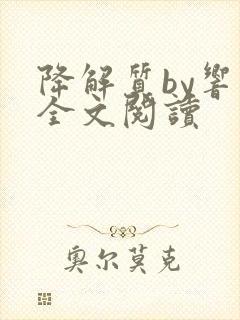 降解質by響
全文閱讀
奥尔莫克